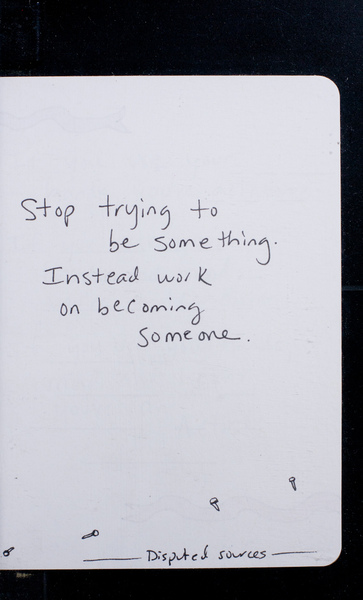 Stop trying to
be something.
Instead work
on becoming
someone.
Disputed sources